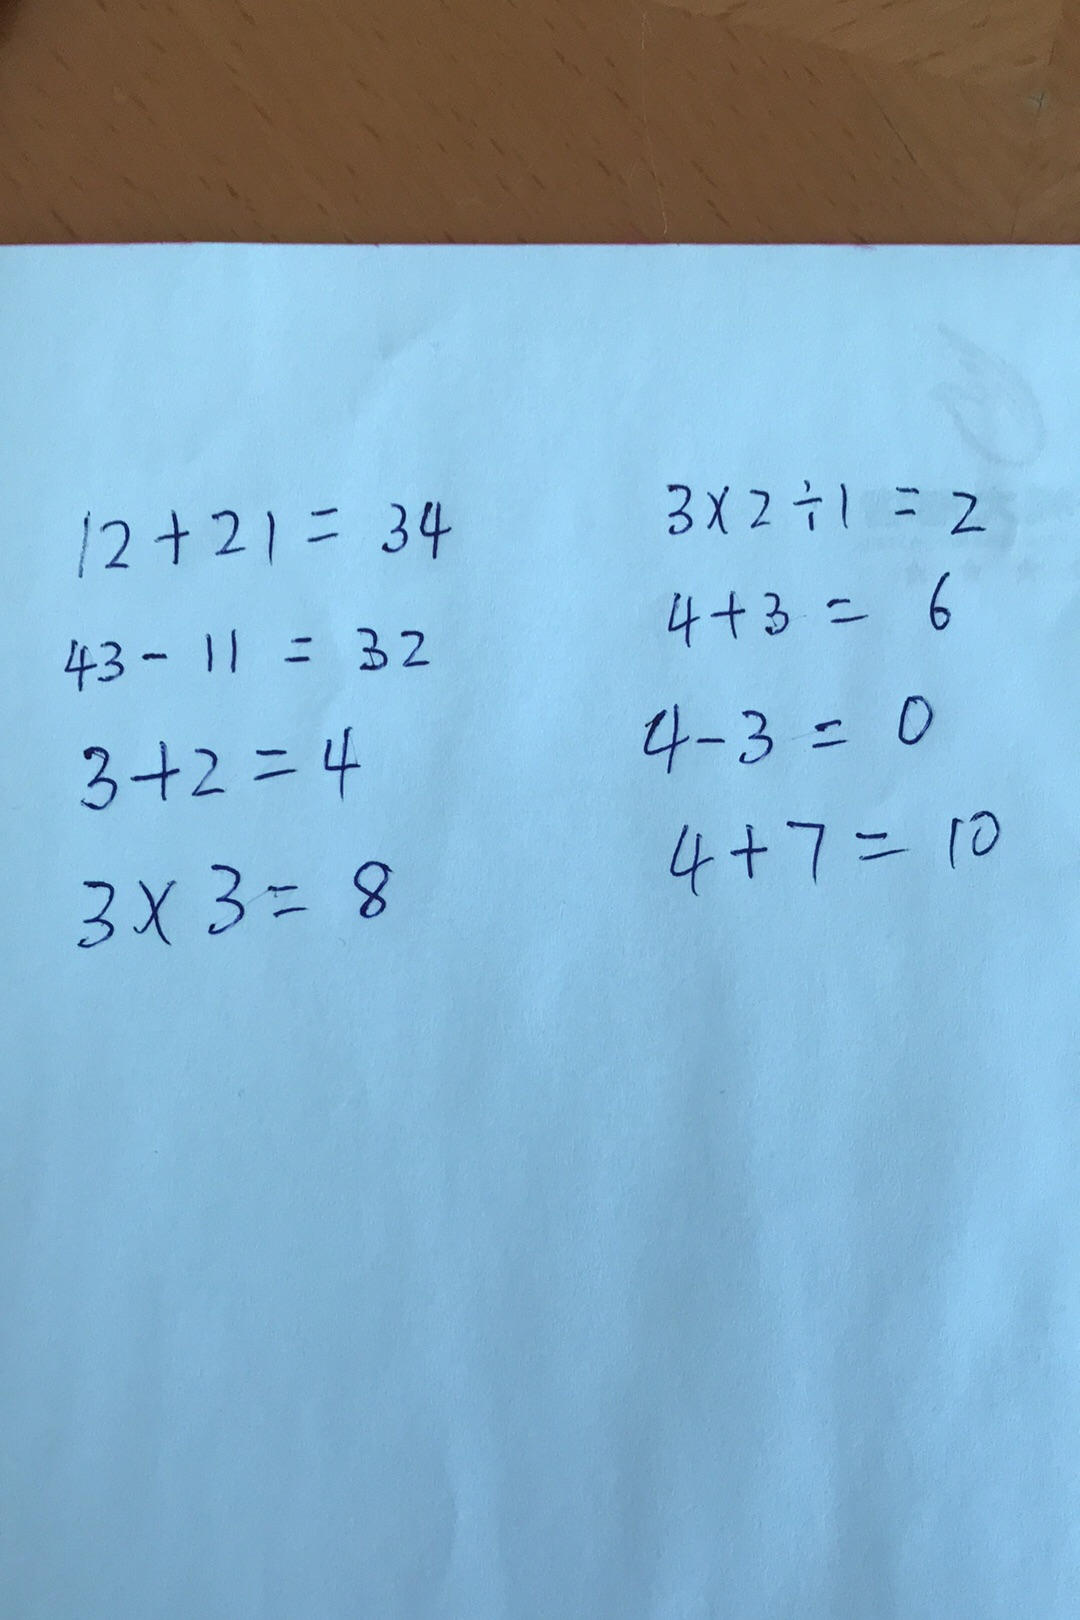 12+21=34
43-11=32
3+2=4
3×3=8
3×2÷1=2
4+3=6
4-3=0
4+7=10